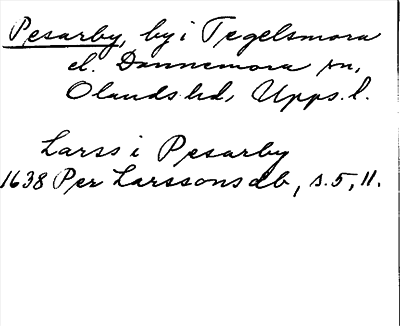 Pesarby, by i Tegelsmora
el. Dannemora sn,
Olands hd, Upps. l.
Larss i Pesarby
1638 Per Larssons db, s. 5, 11.